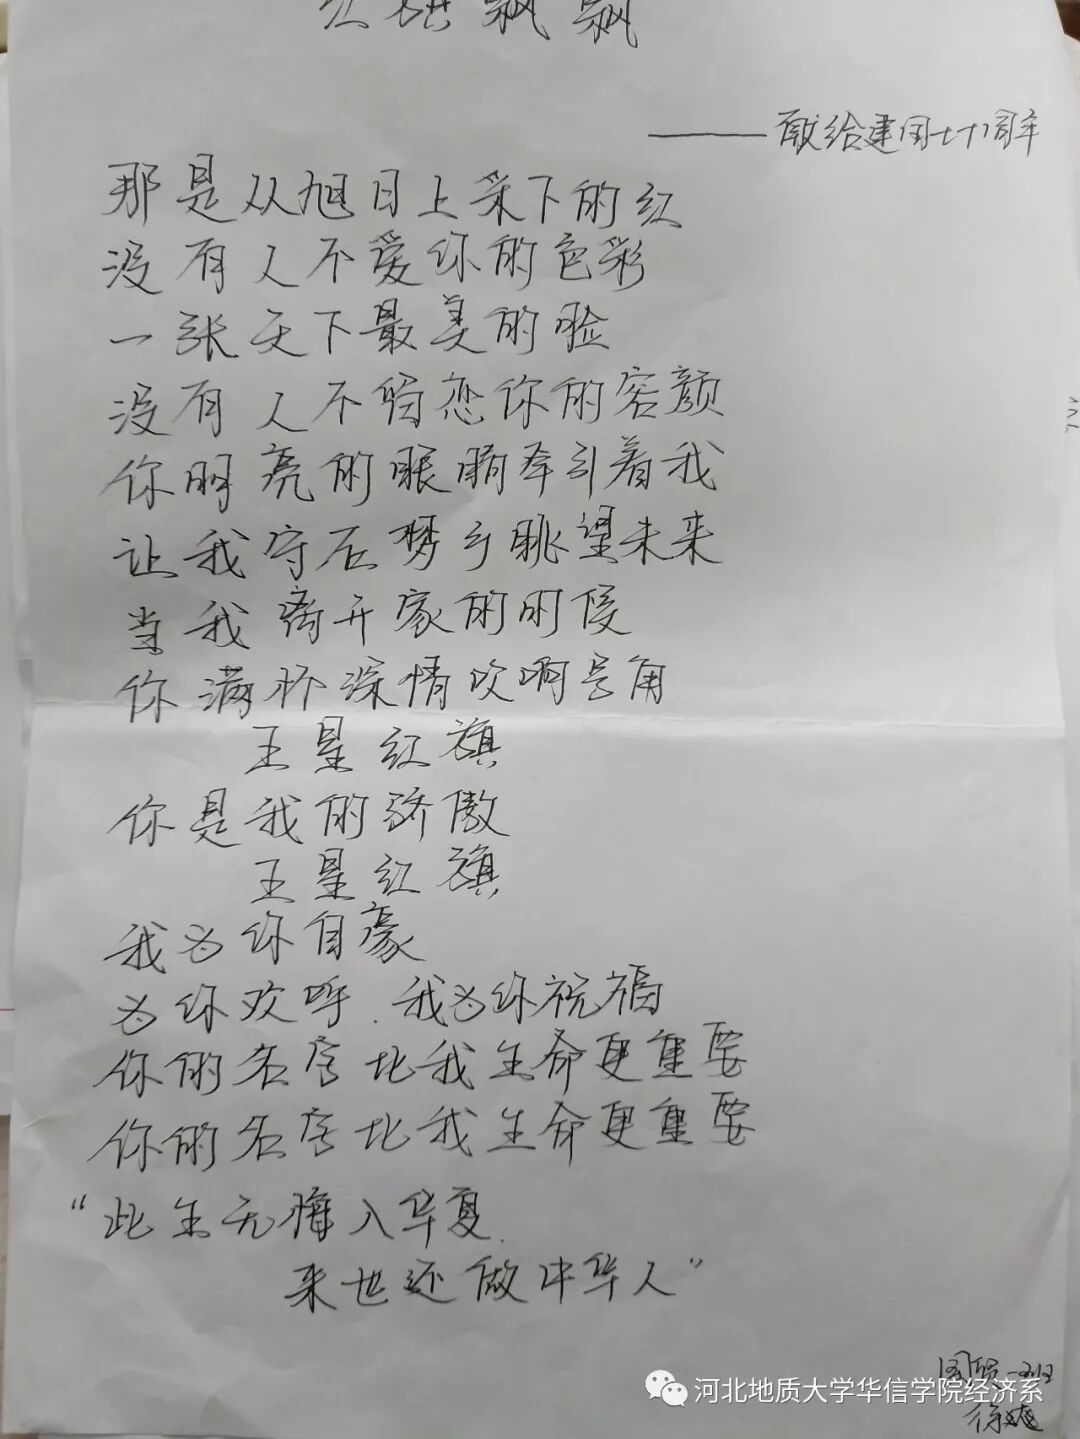 红旗飘飘
——献给建国七十周年
那是从旭日上采下的红
没有人不爱你的色彩
一张天下最美的脸
没有人不留恋你的容颜
你明亮的眼睛牵引着我
让我守在梦乡眺望未来
当我离开家的时候
你满怀深情吹响号角
五星红旗
你是我的骄傲
五星红旗
我为你自豪
为你欢呼.我为你祝福
你的名字比我生命更重要
你的名字比我生命更重要
“此生无悔入华夏.
来世还做中华人”
国贸
徐
河北地质大学华信学院经济系